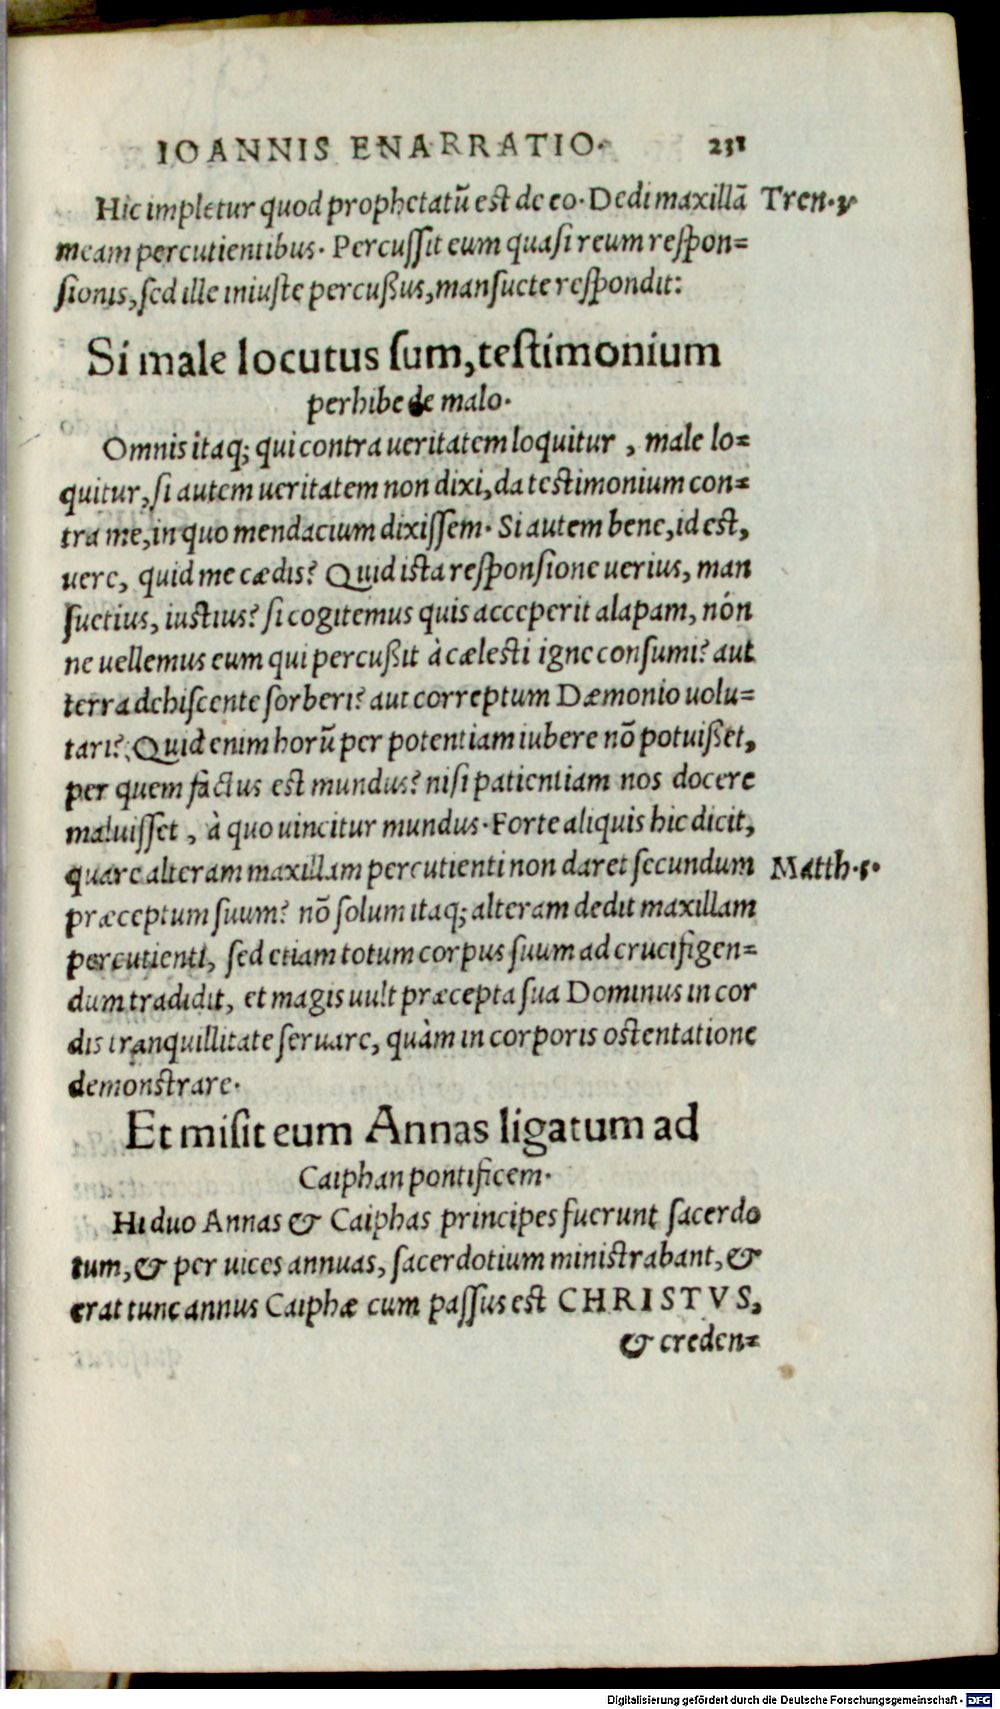 IOANNIS ENARRATIO. 231
Hic impletur quod prophetatũ est de eo. Dedi maxillã Tren. 3
meam percutientibus. Percussit eum quasi reum respon=
sionis, sed ille iniuste percußus, mansuete respondit:
Si male locutus sum, testimonium
perhibe de malo.
Omnis itaq; qui contra ueritatem loquitur, male lo=
quitur, si autem ueritatem non dixi, da testimonium con=
tra me, in quo mendacium dixissem. Si autem bene, id est,
uere, quid me cædis? Quid ista responsione uerius, man
suetius, iustius? si cogitemus quis acceperit alapam, nón
ne uellemus eum qui percußit à cælesti igne consumi? aut
terra dehiscente sorberi? aut correptum Dæmonio uolu=
tari? Quid enim horũ per potentiam iubere nõ potuißet,
per quem factus est mundus? nisi patientiam nos docere
maluisset, à quo uincitur mundus. Forte aliquis hic dicit,
quare alteram maxillam percutienti non daret secundum Matth. 5.
præceptum suum? nõ solum itaq; alteram dedit maxillam
percutienti, sed etiam totum corpus suum ad crucifigen=
dum tradidit, et magis uult præcepta sua Dominus in cor
dis tranquillitate seruare, quàm in corporis ostentatione
demonstrare.
Et misit eum Annas ligatum ad
Caiphan pontificem.
Hi duo Annas & Caiphas principes fuerunt sacerdo
tum, & per uices annuas, sacerdotium ministrabant, &
erat tunc annus Caiphæ cum passus est CHRISTVS,
& creden=
Digitalisierung gefördert durch die Deutsche Forschungsgemeinschaft - DFG